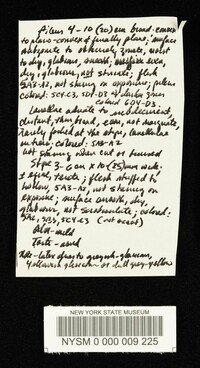 Pileus 4-10 (20) cm broad, convex
to plano-convex & finally plane, surface
to dry, glabrous, smooth, even,
dry, glabrous, not striate; flesh
5A3-A2, not staining on exposure; pileus
colored: 5C4-C3, 5D4-D3 & darker zones
colored 6D4-D3.
Lamellae adnate to subdecurrent,
distant, thin, broad, even, not marginate,
rarely forked at the stipe, lamellulae
entire; colored: 5A3-A2
not staining when cut or bruised
Stipe 3-6 cm x 10 (25) mm wide
± equal, terete; flesh stuffed to
hollow, 5A3-A2, not staining on
exposure; surface smooth, dry,
glabrous, not scrobiculate; colored:
5A2, 5B3, 5C4-C3 (not ocest)
Odor-mild
Taste-acrid
Note-latex dries to greyish-glaucous,
yellowish glaucous or dull grey-yellow
NEW YORK STATE MUSEUM
NYSM 0 000 009 225